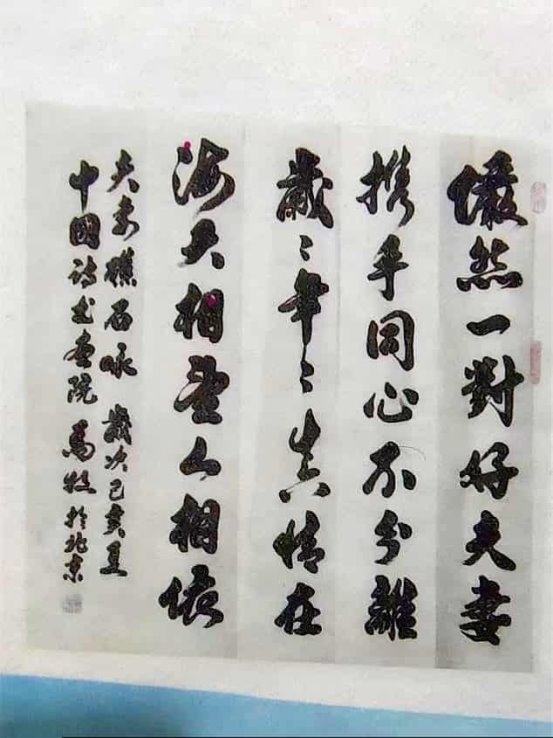 儼然一對好夫妻
携手同心不分離
歲〻年〻真情在
海天相望心相依
夫妻礁石咏 歲次己亥夏
中國詩書畫院 馬牧於北京